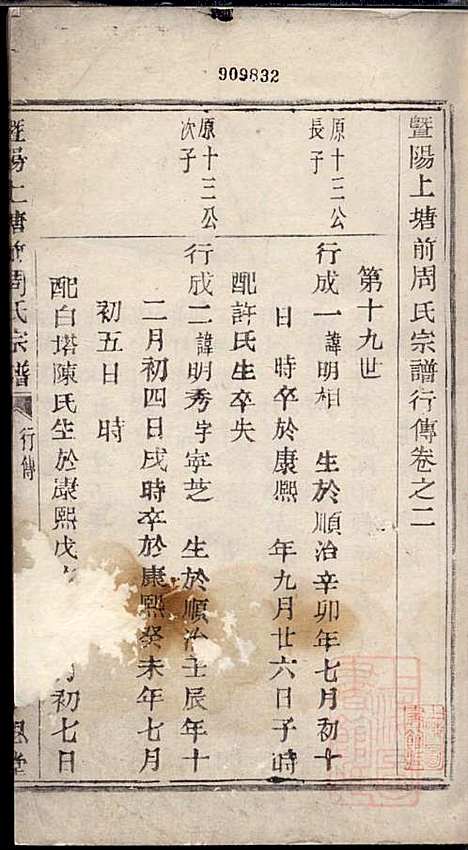 909832
暨陽上塘前周氏宗譜行傳卷之二
第十九世
原十三公
長子
行成一諱明相 生於順治辛卯年七月初十
日 時卒於康熙 年九月廿六日子時
配許氏生卒失
原十三公
次子
行成二諱明秀字寧芝 生於順治壬辰年十
二月初四日戌時卒於康熙癸未年七月
初五日 時
配白塔陳氏生於康熙戊 月初七日
暨陽上塘前周氏宗譜
行傳
堂